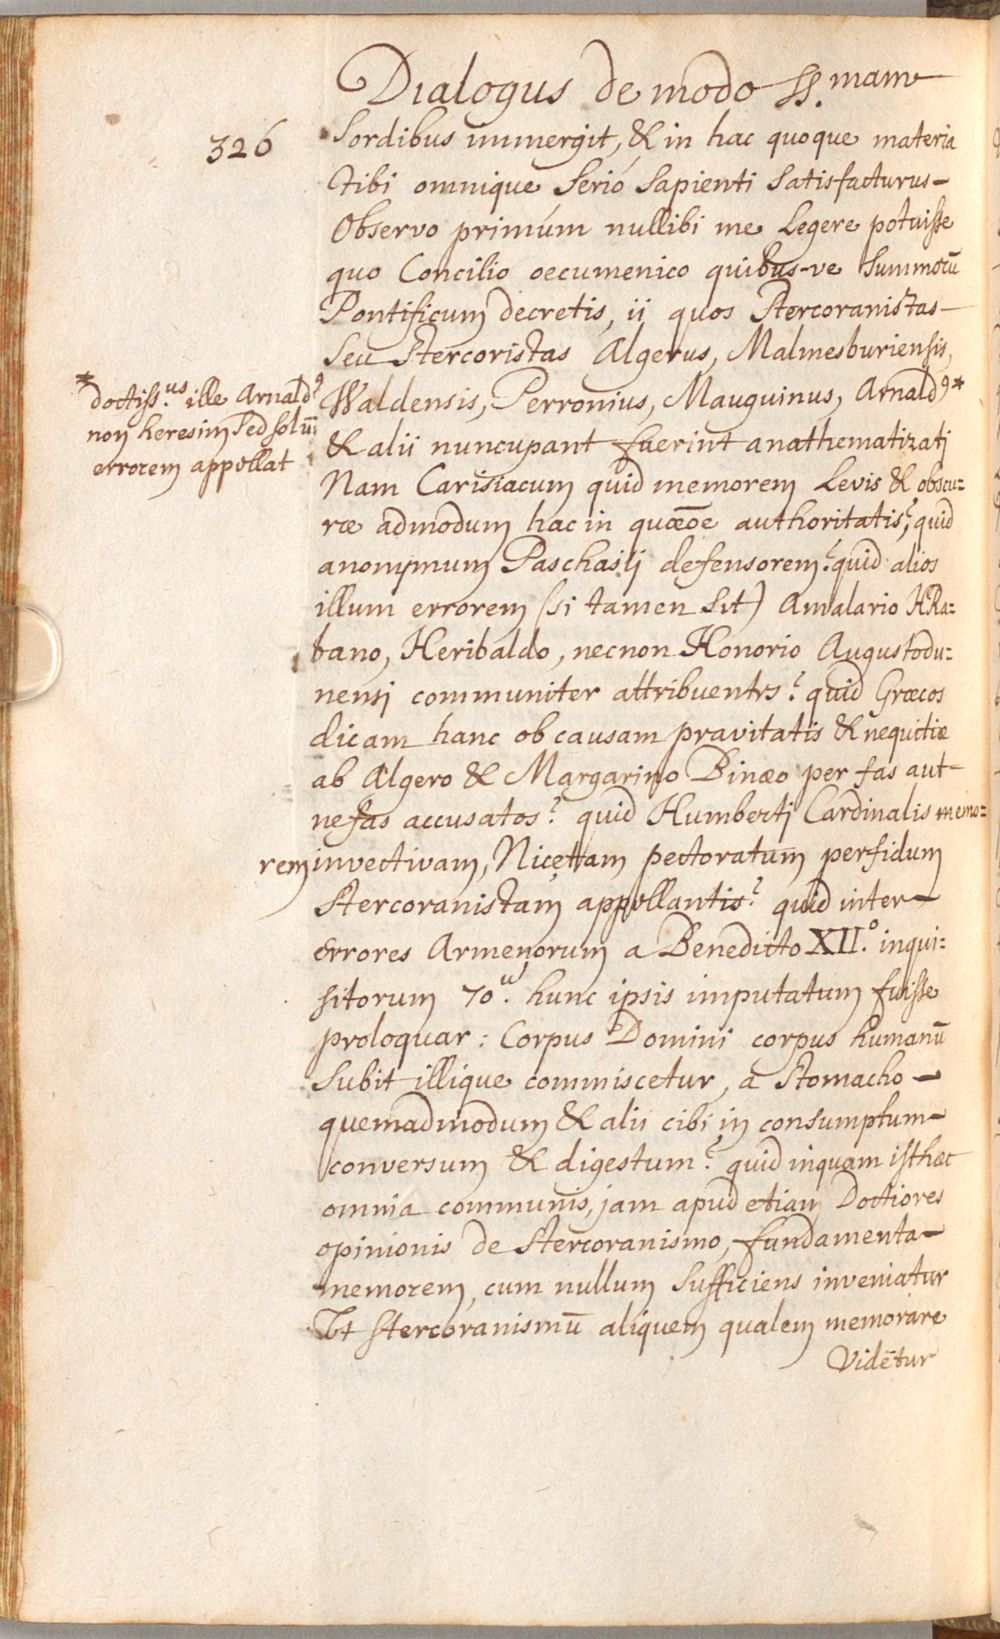 Dialogus de modo SS.mam
326
sordibus immergit, & in hac quoque materia
Tibi omnique serió sapienti satisfacturus-
Observo primúm nullibi me legere potuisse
quo Concilio oecumenico quibus-ve summoru̅
Pontificum decretis, ii quos Stercoranistas-
seu stercoristas Algerus, Malmesburiensis,
Waldensis, Perronius, Mauguinus, Arnald9*
*doctiss.us ille Arnald9
non heresim sed solu̅
errorem appellat
& alii nuncupant fuerint anathematizatj
Nam Carisiacum quid memorem levis & obscu:
ræ admodum hac in quæōe authoritatis? quid
anonymum Paschasij defensorem? quid alios
illum errorem (si tamen sit) Amalario HRa:
bano, Heribaldo, necnon Honorio Augustodu:
nensj communiter attribuentes? quid Græcos
dicam hanc ob causam pravitatis & nequitiæ
ab Algero & Margarino Binæo per fas aut-
nefas accusatos? quid Humbertj Cardinalis memo:
rem invectivam, Nicettam pectoratum perfidum
stercoranistam appellantis? quid inter-
errores Armenorum a Benedicto XII.o inqui:
sitorum 70.u hunc ipsis imputatum fuisse
proloquar: Corpus Domini corpus humanu̅
subit illique commiscetur, a stomacho-
quemadmodum & alii cibi in consumptum-
conversum & digestum? quid inquam isthæc
omnia communis, jam apud etiam Doctiores
opinionis de stercoranismo, fundamenta-
memorem, cum nullum sufficiens inveniatur
Ut stercoranismu̅ aliquem qualem memorare
Vide̅tur